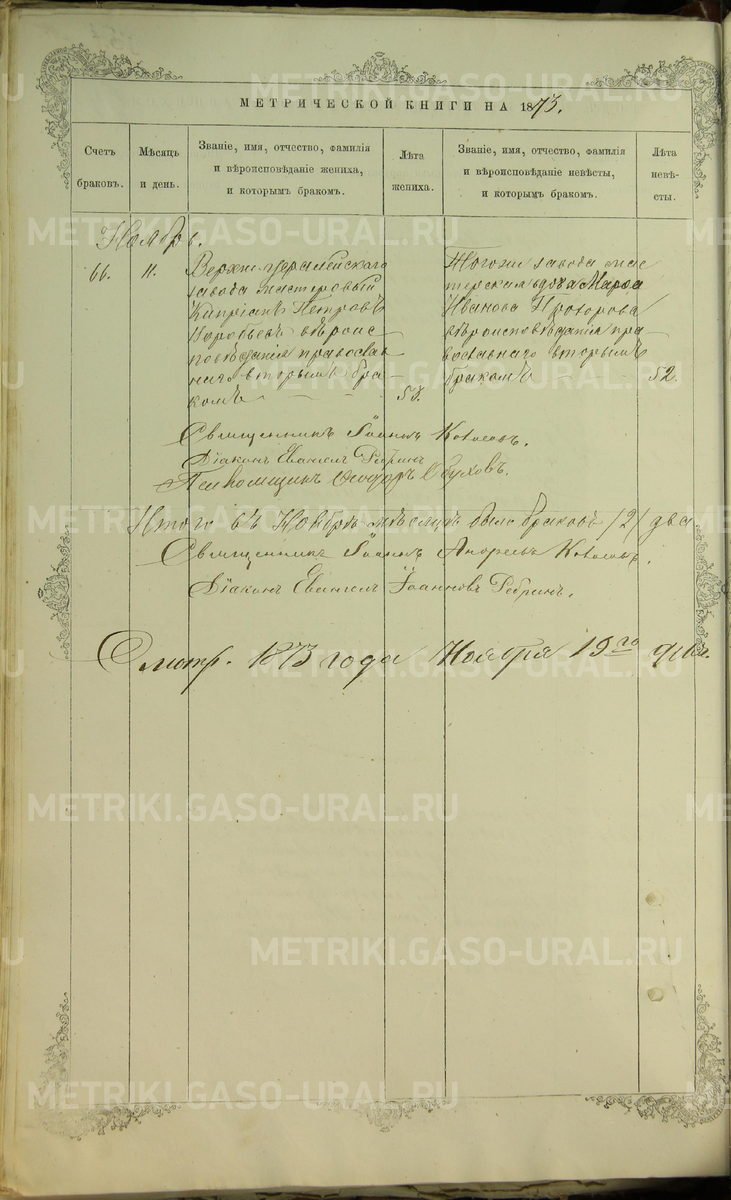 МЕТРИЧЕСКОЙ КНИГИ НА 1873.
Счетъ браковъ.
Мѣсяцъ и день.
Званіе, имя, отчество, фамилія
и вѣроисповѣданіе жениха,
и которымъ бракомъ.
Лѣта жениха.
Званіе, имя, отчество, фамилія
и вѣроисповѣданіе невѣсты,
и которымъ бракомъ.
Лѣта невѣ-
сты.
Ноябрь.
66.
11.
завода мастеровый
Кипріанъ Петровъ
Коробьевъ вѣроис
повѣданія православ
наго вторымъ бра
комъ
53.
Тогоже завода мас
терская вдова Марѳа
Иванова Прохорова
вѣроисповѣданія пра
вославнаго вторымъ
бракомъ
52.
Священникъ Іоаннъ
Діаконъ Евангелъ Ребринъ
Псаломщикъ Ѳеодоръ Обуховъ.
Итого въ Ноябрѣ мѣсяцѣ было браковъ /2/ два
Священникъ Іоаннъ Андреевъ
Діаконъ Евангелъ Іоанновъ Ребринъ.
Смотр. 1873 года Ноября 19го дня.
METRIKI.GASO-URAL.RU